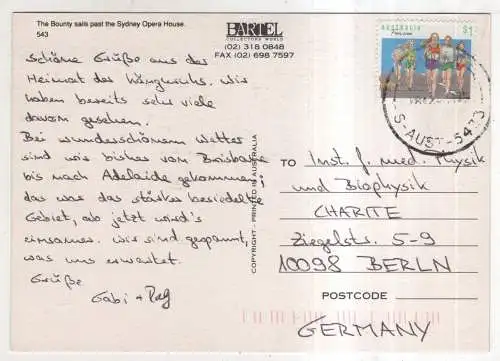 The Bounty sails past the Sydney Opera House.
543
BARTEL
COLLECTORS WORLD
(02) 318 0848
FAX (02) 698 7597
AUSTRALIA
$1
Fun run
S. AUST - 5473
Schöne Grüße aus der
Heimat des Känguruhs. Wir
haben bereits sehr viele
davon gesehen.
Bei wunderschönem Wetter
sind wir bisher von Brisbane
bis nach Adelaide gekommen,
das war das stärker besiedelte
Gebiet, ab jetzt wird's
einsamer. Wir sind gespannt,
was uns erwartet.
Grüße
Gabi +
COPYRIGHT - PRINTED IN AUSTRALIA
TO
Inst. f. med. Physik
und Biophysik
CHARITE
Ziegelstr. 5-9
10098 BERLIN
POSTCODE
GERMANY